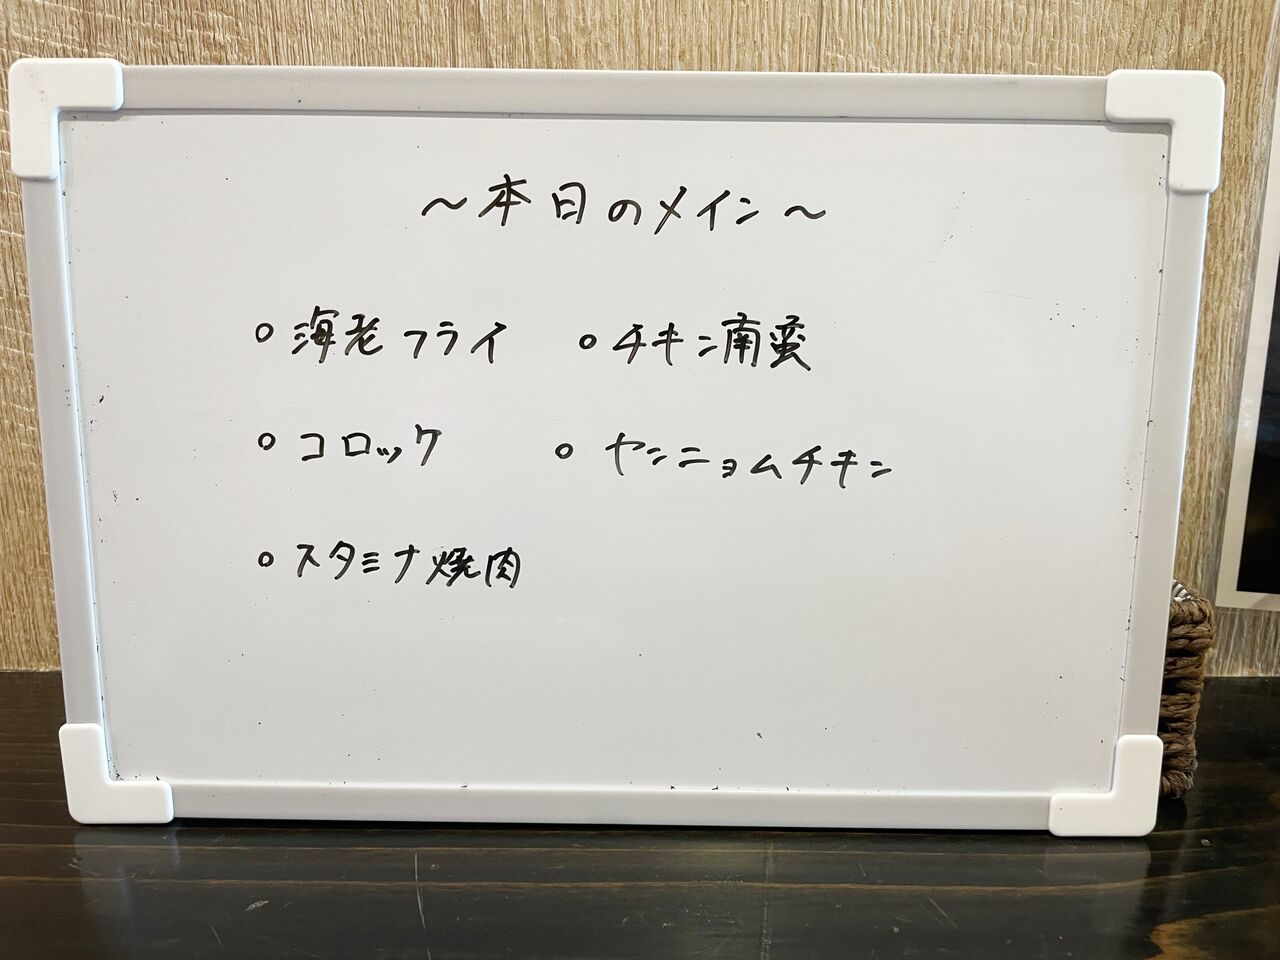 ～本日のメイン～
○海老フライ ○チキン南蛮
○コロッケ ○ヤンニョムチキン
○スタミナ焼肉